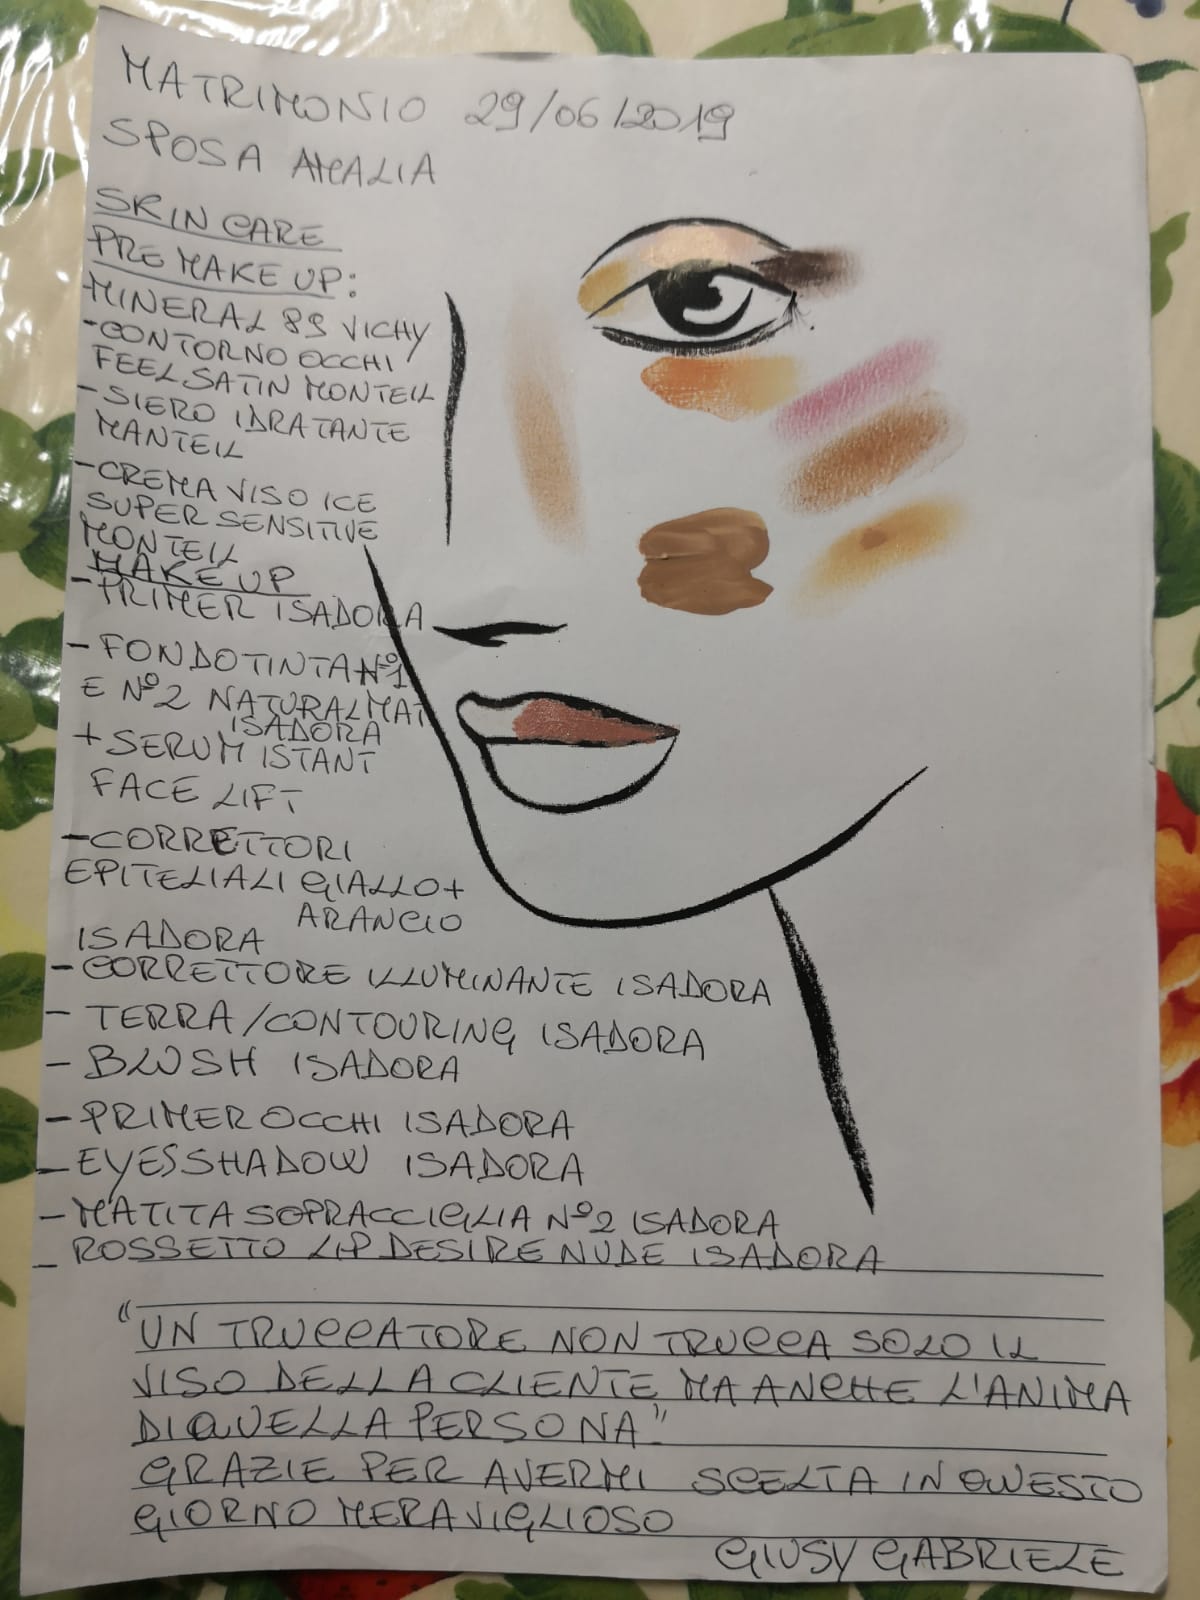 MATRIMONIO 29/06/2019
SPOSA AMALIA
SKIN CARE
PRE MAKE UP:
MINERAL 89 VICHY
-CONTORNO OCCHI
FEEL SATIN MONTEIL
-SIERO IDRATANTE
MANTEIL
-CREMA VISO ICE
SUPER SENSITIVE
MONTEIL
MAKE UP
-PRIMER ISADORA
- FONDOTINTA N°1
E N°2 NATURALMAT
ISADORA
+ SERUM ISTANT
FACE LIFT
-CORRETTORI
EPITELIALI GIALLO+
ARANCIO
ISADORA
- CORRETTORE ILLUMINANTE ISADORA
- TERRA/CONTOURING ISADORA
- BLUSH ISADORA
- PRIMER OCCHI ISADORA
- EYESSHADOW ISADORA
- MATITA SOPRACCIGLIA N°2 ISADORA
_ ROSSETTO LIP DESIRE NUDE ISADORA
"UN TRUCCATORE NON TRUCCA SOLO IL
VISO DELLA CLIENTE MA ANCHE L'ANIMA
DI QUELLA PERSONA"
GRAZIE PER AVERMI SCELTA IN QUESTO
GIORNO MERAVIGLIOSO
GIUSY GABRIELE